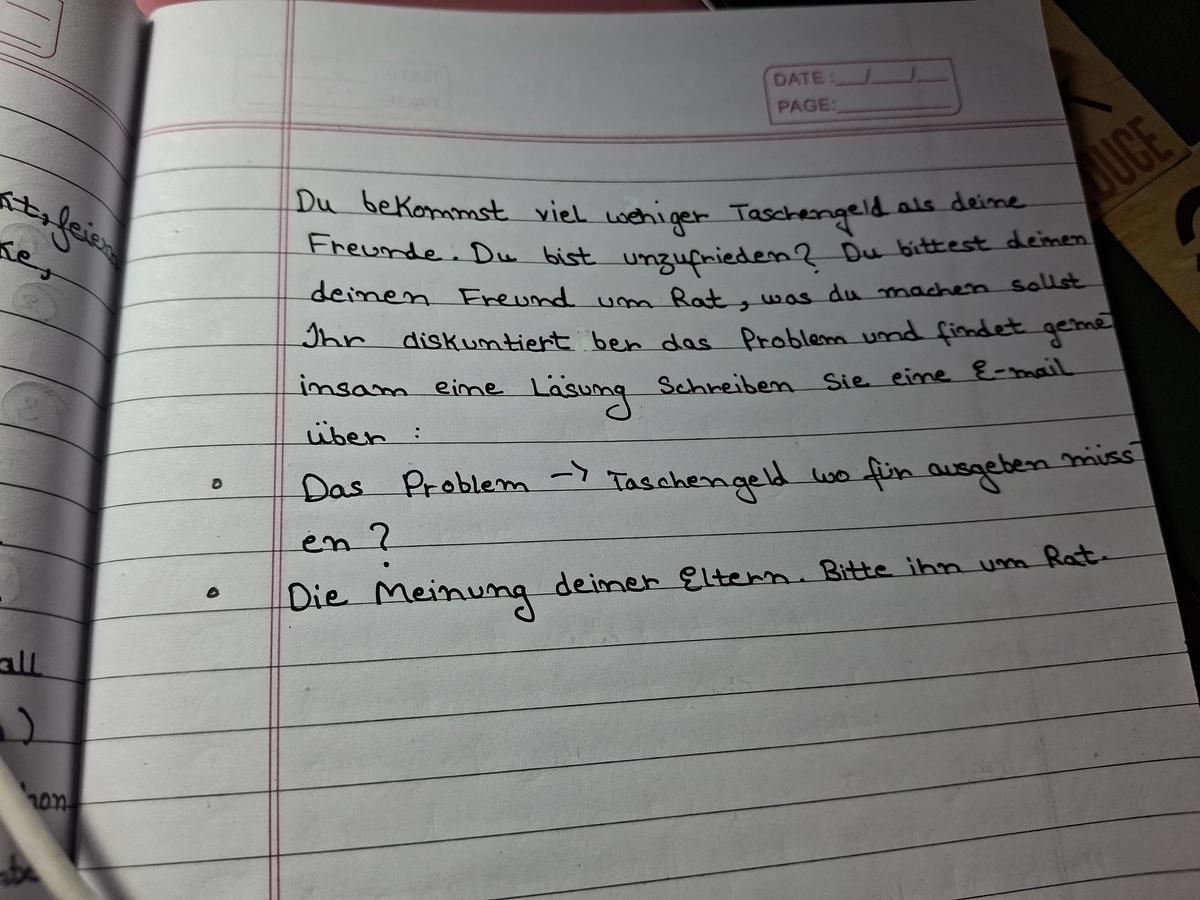 DATE: __/__/__
PAGE: ______
Du bekommst viel weniger Taschengeld als deine
Freunde. Du bist unzufrieden? Du bittest deinen
deinen Freund um Rat, was du machen sollst
Ihr diskuntiert ber das Problem und findet geme
insam eine Läsung Schreiben Sie eine E-mail
über :
• Das Problem → Taschengeld wo für ausgeben müss
en ?
• Die Meinung deiner Eltern. Bitte ihn um Rat.
kt, feiern
ke,
all
)
hon
abe
DUCE